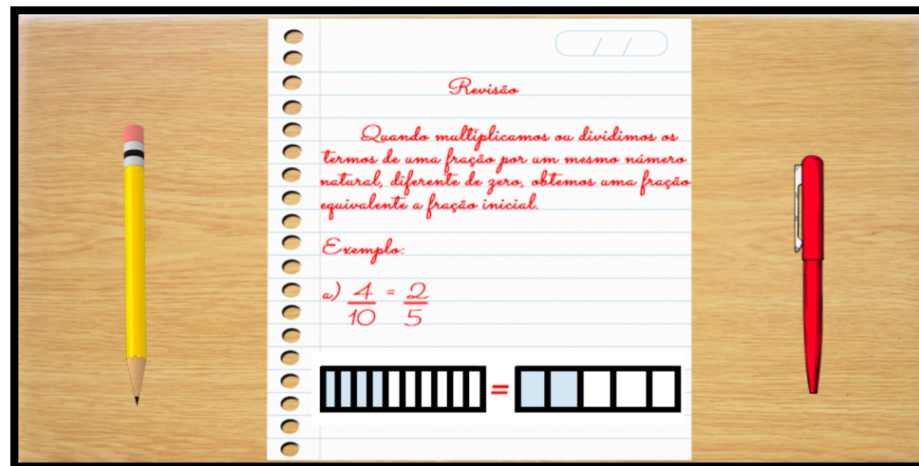 Revisão
Quando multiplicamos ou dividimos os
termos de uma fração por um mesmo número
natural, diferente de zero, obtemos uma fração
equivalente a fração inicial.
Exemplo:
a) 4/10 = 2/5
=